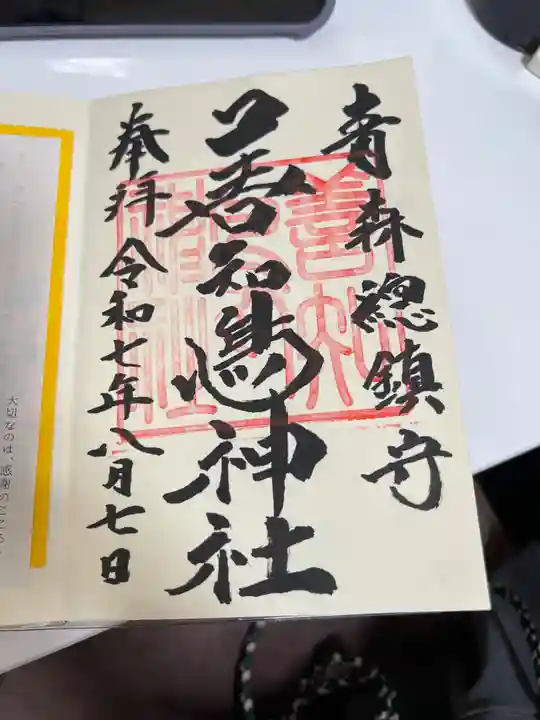 青森總鎮守
善知鳥神社
奉拝 令和七年八月七日
善知鳥神社
大切なのは、感謝のこころ